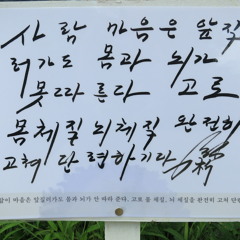 사람 마음은 앞질
러가도 몸과 뇌가
못따라 른다 고로
몸체질 뇌체질 완전히
고쳐 단련하기다
람이 마음은 앞질러가도 몸과 뇌가 안 따라 준다. 고로 몸 체질, 뇌 체질을 완전히 고쳐 단련